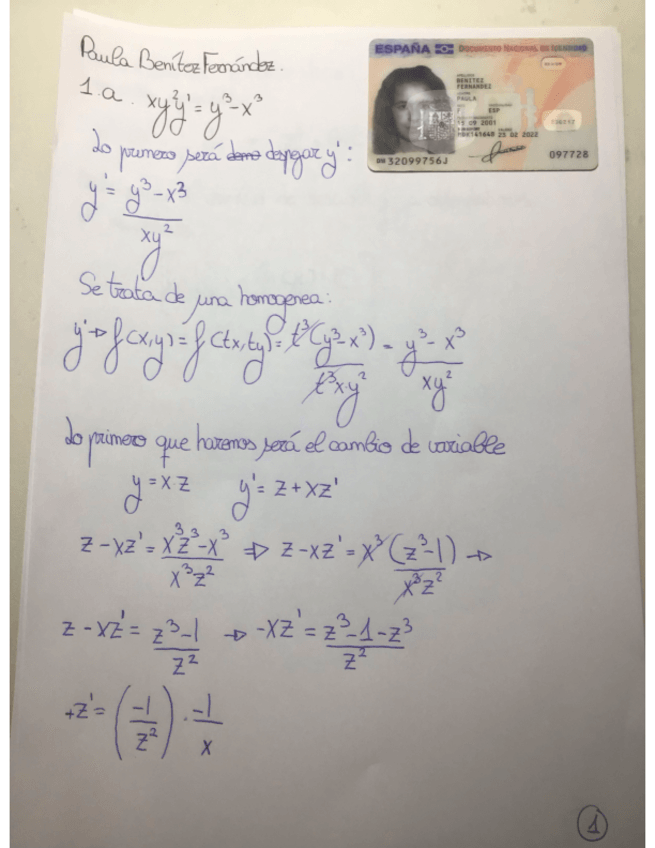 Paula Benítez Fernández.
1.a. xy²y' = y³-x³
Lo primero será despejar y':
y' = (y³-x³)/(xy²)
Se trata de una homogenea:
y' → f(x,y) = f(tx,ty) = t³(y³-x³)/(t³xy²) = (y³-x³)/(xy²)
Lo primero que haremos será el cambio de variable
y = x·z y' = z+xz'
z-xz' = (x³z³-x³)/(x³z²) ⇒ z-xz' = x³(z³-1)/(x³z²) →
z-xz' = (z³-1)/z² → -xz' = (z³-1-z³)/z²
+z' = (-1/z²)·(-1/x)
1
ESPAÑA DOCUMENTO NACIONAL DE IDENTIDAD
BENITEZ
FERNANDEZ
PAULA
F ESP
2001
25 02 2022
DNI 32099756J
097728